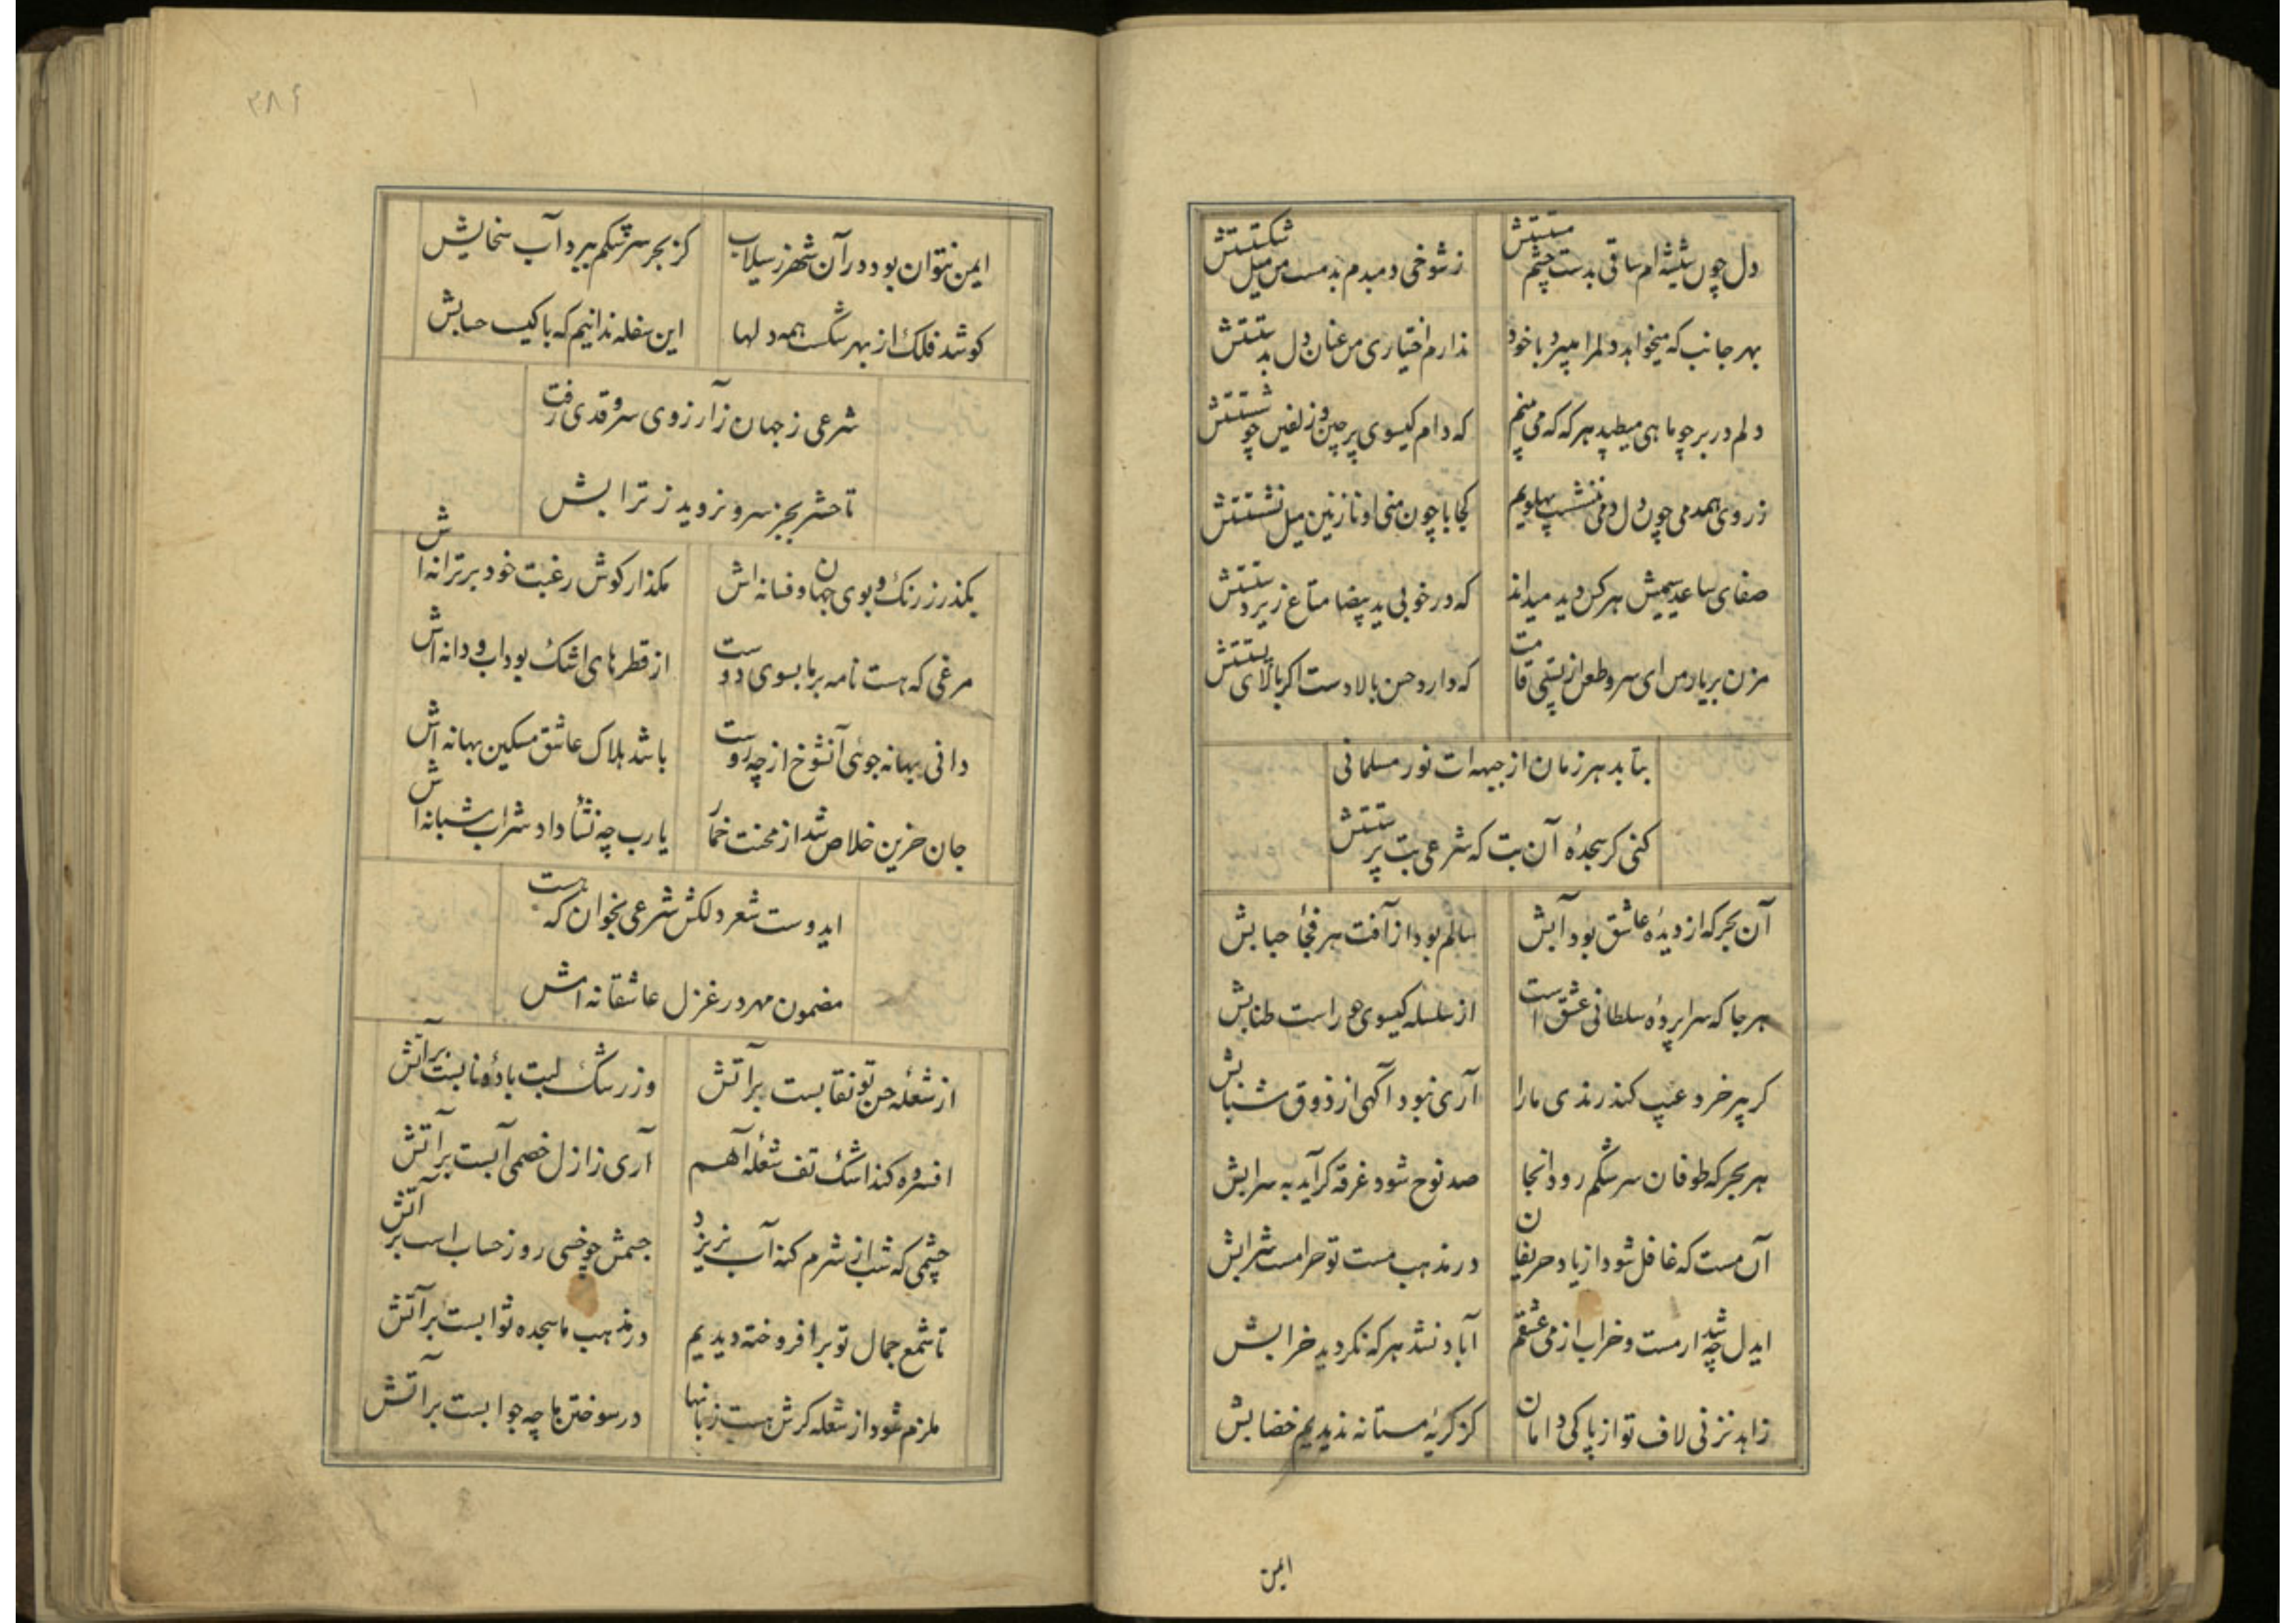 دل چون شیشه ام ساقی بدست چشم مستتش زشوخی دمبدم بدمست من میل شکستتش
بهر جانب که میخواهد دلمرا میبرد با خود ندارم اختیاری من عنان دل بدستتش
دلم در بر چو ماهی میطپد هرکه که می بینم که دام کیسوی پرچین و زلفین چو شستتش
ز روی همدمی چون دل دمی ننشست پهلویم کجا با چون منی او نازنین میل نشستتش
صفای ساعد سیمیش هرکس دید میداند که در خوبی ید بیضا متاع زیردستتش
مزن بر یار من ای سرو طعن از پستی قامت که دارد حسن بالادست اکر بالای پستتش
بتابد هر زمان از جبهه ات نور مسلمانی
کنی کر سجدهٔ آن بت که شرعی بت پرستتش
آن بحر که از دیدهٔ عاشق بود آبش سالم بود از آفت هر فجأ حبابش
هرجا که سراپردهٔ سلطانی عشق است از سلسله کیسوی حور است طنابش
کر پیر خرد عیب کند رندی مارا آری نبود آکهی از ذوق شبابش
هر بحر که طوفان سرشکم رود آنجا صد نوح شود غرقه کر آید به سرابش
آن مست که غافل شود از یاد حریفان در مذهب مست تو حرامست شرابش
ایدل چه شد ار مست و خراب از می عشقم آباد نشد هرکه نکردید خرابش
زاهد نزنی لاف تو از پاکی دامان کز کریهٔ مستانه ندیدیم خضابش
ایمن
۳۸۶
ایمن نتوان بود در آن شهر ز سیلاب کز بحر سرشکم ببرد آب سخابش
کوشد فلک از بهر شکست همه دلها این سفله ندانیم که با کیست حسابش
شرعی ز جهان ز آرزوی سرو قدی رفت
تا حشر بجز سرو نروید ز ترابش
بکذر ز رنک و بوی جهان و فسانه اش مکذار کوش رغبت خود بر ترانه اش
مرغی که هست نامه بر ما بسوی دوست از قطرهای اشک بود آب و دانه اش
دانی بهانه جوئی آنشوخ از چه روست باشد هلاک عاشق مسکین بهانه اش
جان حزین خلاص شد از محنت خمار یارب چه نشأ داد شراب شبانه اش
ایدوست شعر دلکش شرعی بخوان که هست
مضمون مهر در غزل عاشقانه اش
از شعلهٔ حسن تو نقابست برآتش وز رشک لبت بادهٔ نابست برآتش
افسرده کند اشک تف شعلهٔ آهم آری ز ازل خصمی آبست برآتش
چشمی که شب از شرم کنه آب نریزد جسمش چو خسی روز حساب است بر آتش
تا شمع جمال تو برافروخته دیدیم در مذهب ما سجده ثوابست برآتش
ملزم شود از شعله کرش هست زبانها در سوختن ما چه جوابست برآتش